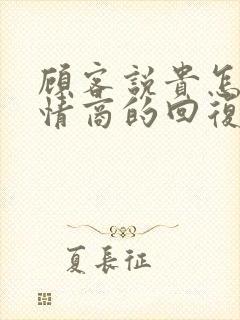 顧客說貴怎
情商的回復
夏長征